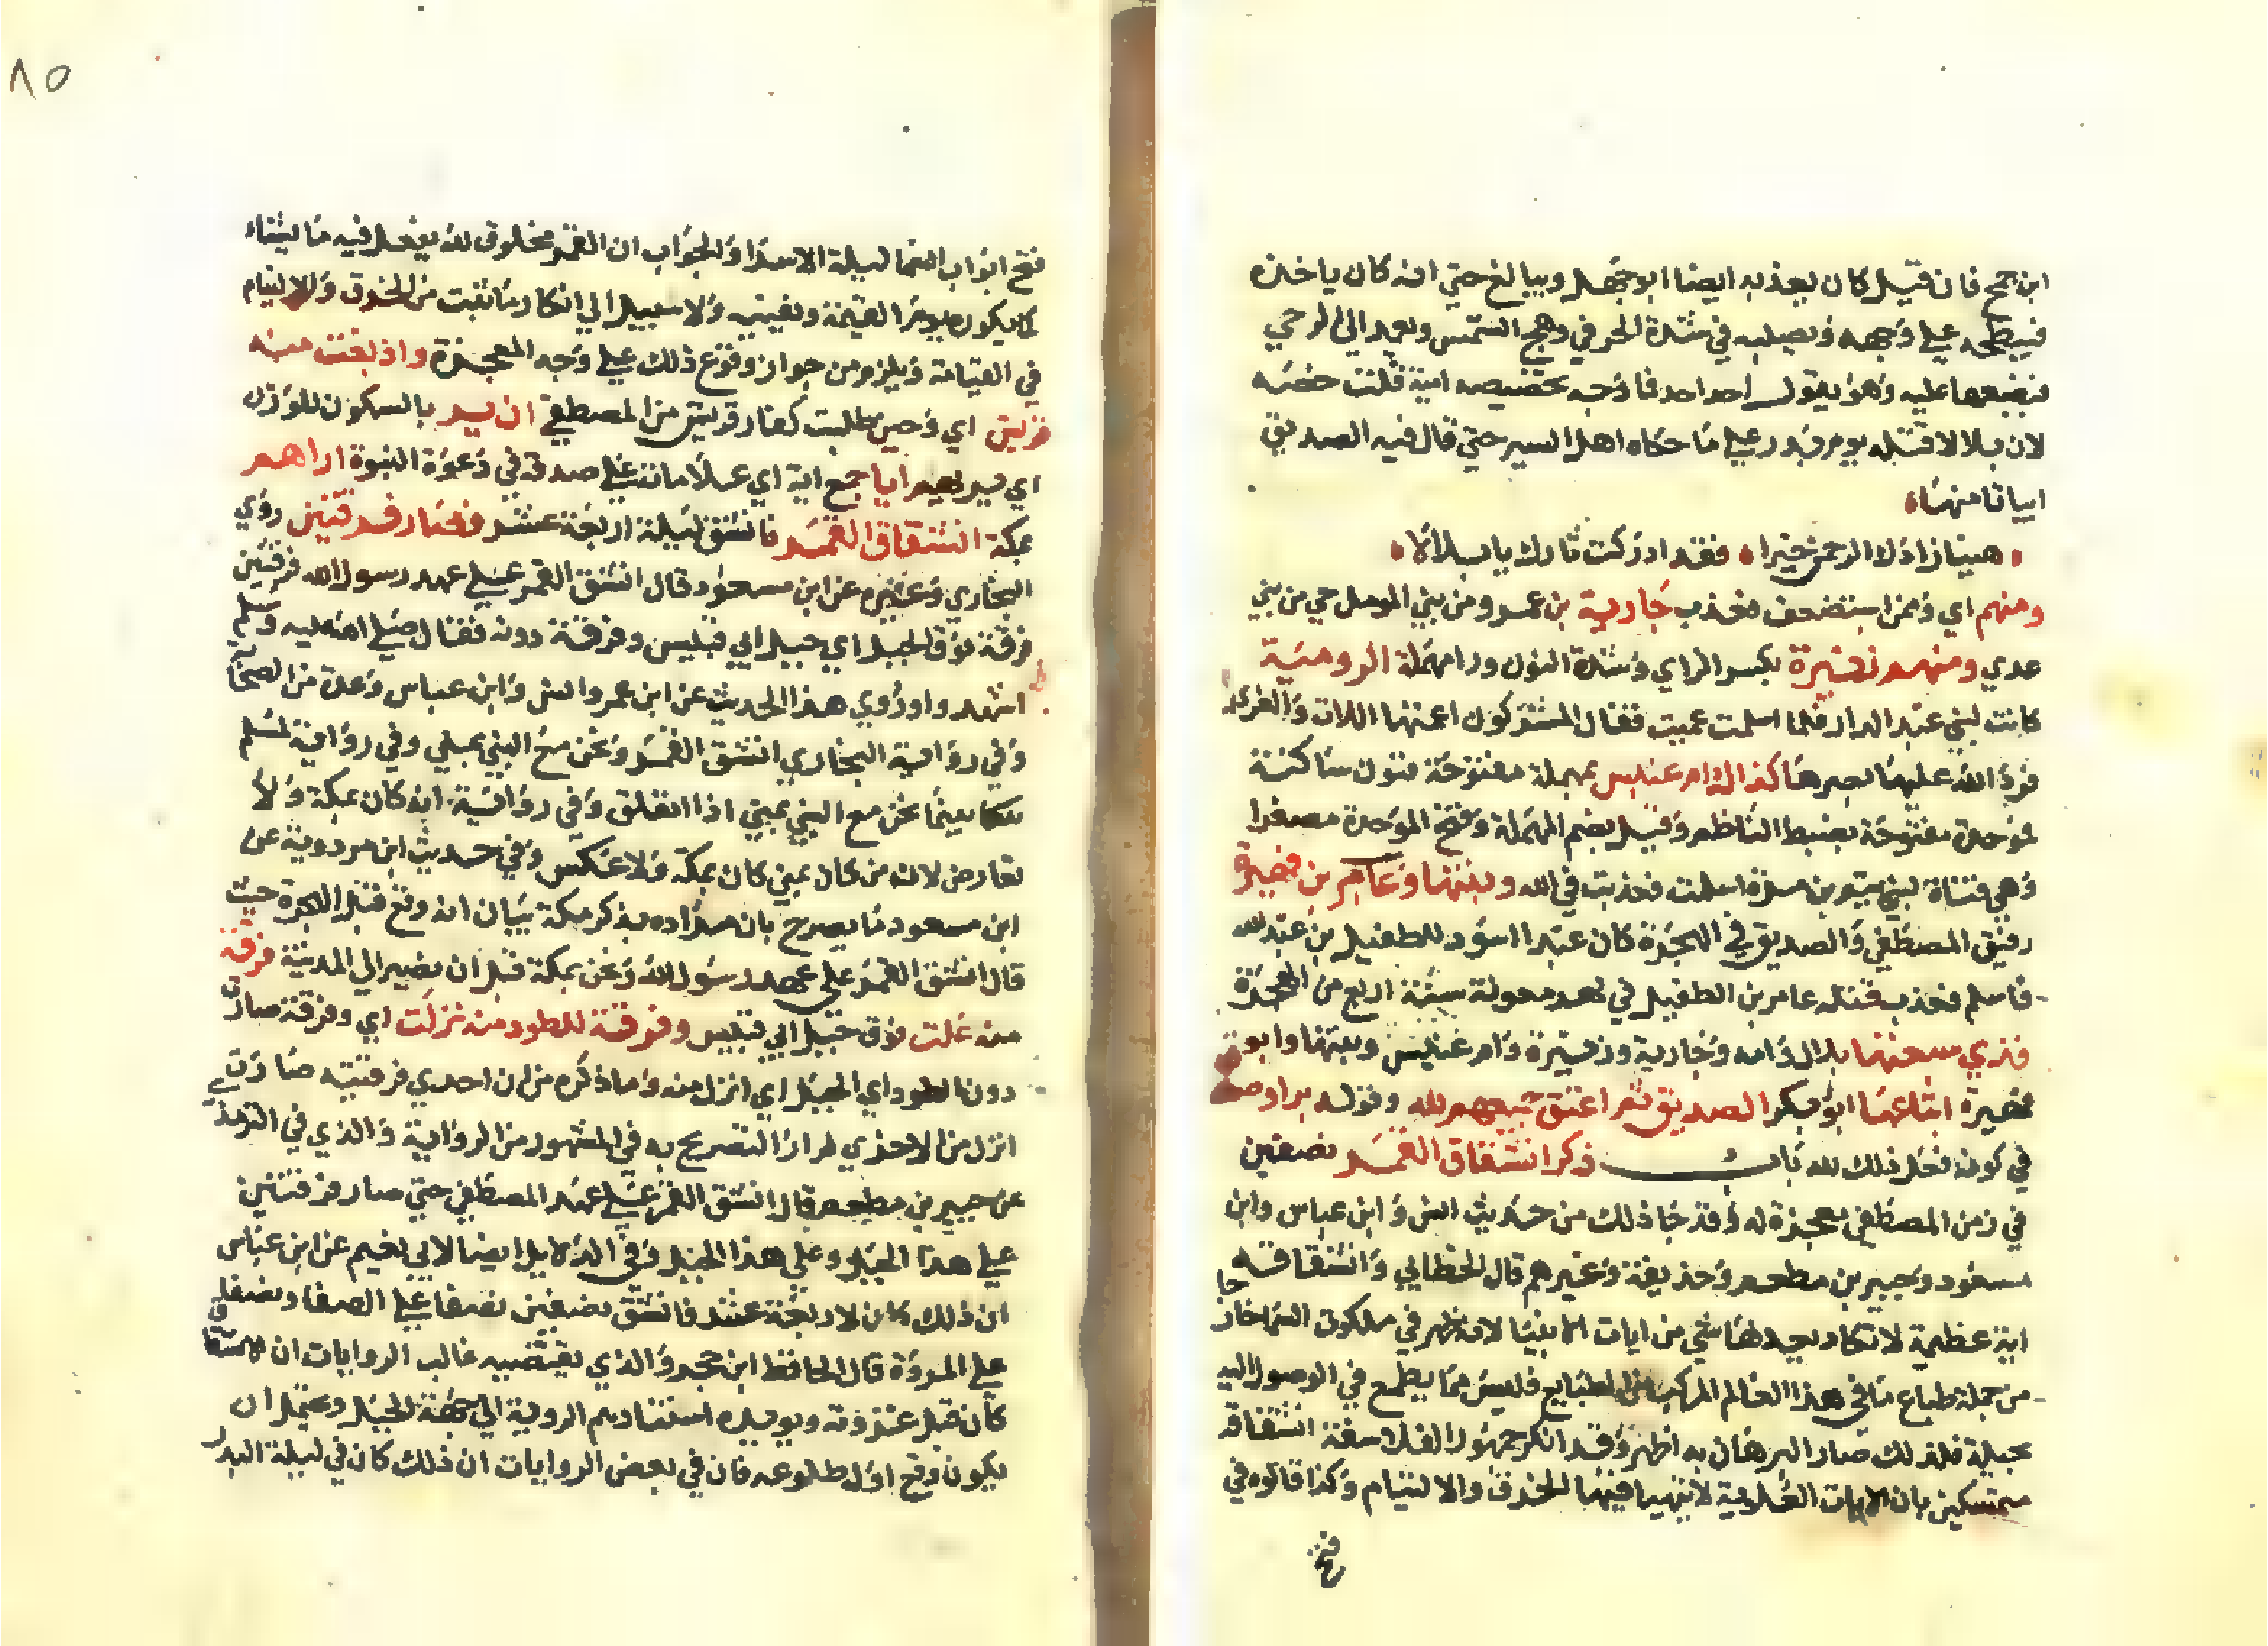 ابن جمح فان قيل كان يعذبه ايضا ابو جهل ويبالغ حتي انه كان ياخذه
فيبطحه علي وجهه ويصلبه في شدة الحر في وهج الشمس ويعمد الي الرحي
فيضعها عليه وهو يقول احد احد فما وجه تخصيصه امية قلت خصه
لان بلالا قتله يوم بدر علي ما حكاه اهل السير حتي قال فيه الصديق
ابياتا منها
هنيا زادك الرحمن خيرا فقد ادركت ثارك يا بلالا
ومنهم اي وممن استضعف فعذب جارية بن عمرو من بني المومل حي من بني
عدي ومنهم زنيرة بكسر الزاي وشدة النون ورا مهملة الرومية
كانت لبني عبد الدار فلما اسلمت عميت فقال المشركون اعمتها اللات والعزي
فرد الله عليها بصرها كذاك ام عنبس بمهملة مفتوحة فنون ساكنة
فموحدة مفتوحة بضبط الناظم وقيل بضم المهملة وفتح الموحدة مصغرا
وهي فتاة لبني تيم بن مرة اسلمت فعذبت في الله وبنتها وعامر بن فهيرة
رفيق المصطفي والصديق في الهجرة كان عبدا اسود للطفيل بن عبد الله
فاسلم فعذب قتله عامر بن الطفيل في بعد معونة سنة اربع من الهجرة
فذي سبعتها بلال وامه وجارية وزنيرة وام عنبس وبنتها وابو
فهيرة ابتاعها ابو بكر الصديق ثم اعتق جميعهم لله وقوله بر اوصح
في كونه فعل ذلك لله باب ذكر انشقاق القمر نصفين
في زمن المصطفي معجزة له وقد جا ذلك من حديث انس وابن عباس وابن
مسعود وجبير بن مطعم وحذيفة وغيرهم قال الخطابي وانشقاقه
اية عظيمة لا تكاد يعد لها شي من ايات الانبيا لانه ظهر في ملكوت السما خارجا
من جملة طباع ما في هذا العالم المركب من الطبايع فليس مما يطمع في الوصول اليه
بحيلة فلذلك صار البرهان به اظهر وقد انكر جمهور الفلاسفة انشقاقه
متمسكين بان الايات العلوية لا يتهيا فيها الخرق والالتيام وكذا قالوه في
فتح
٨٥
فتح ابواب السما ليلة الاسرا والجواب ان القمر مخلوق لله يفعل فيه ما يشاء
كما يكوره يوم القيمة ويفنيه ولا سبيل الي انكار ما ثبت من الخرق والالتيام
في القيامة ويلزم من جواز وقوع ذلك علي وجه المعجزة واذ بغت منه
قريش اي وحين طلبت كفار قريش من المصطفي ان ير بالسكون للوزن
اي يريهم اياجمع اية اي علاماتنا علي صدقه في دعوة النبوة اراهم
بمكة انشقاق القمر فانشق ليلة اربعة عشر فصار فرقتين روي
البخاري وغيره عن ابن مسعود قال انشق القمر علي عهد رسول الله فرقتين
فرقة فوق الجبل اي جبل ابي قبيس وفرقة دونه فقال صلي الله عليه وسلم
اشهدوا وروي هذا الحديث عن ابن عمر وانس وابن عباس وعدة من الصحابة
وفي رواية البخاري انشق القمر ونحن مع النبي بمني وفي رواية لمسلم
بينما نحن مع النبي بمني اذا انفلق وفي رواية انه كان بمكة ولا
تعارض لان من كان بمني كان بمكة ولا عكس وفي حديث ابن مردوية عن
ابن مسعود ما يصرح بان مراده بذكر مكة بيان انه وقع قبل الهجرة حيث
قال انشق القمر علي عهد رسول الله ونحن بمكة قبل ان نصير الي المدينة فرقة
منه علت فوق جبل ابي قبيس وفرقة للطود منه نزلت اي وفرقة صارت
دون الطود اي الجبل اي انزل منه وما ذكره من ان احدي فرقتيه صارت
انزل من الاخري لم ار التصريح به في المشهور من الرواية والذي في الترمذي
عن جبير بن مطعم قال انشق القمر علي عهد المصطفي حتي صار فرقتين
علي هذا الجبل وعلي هذا الجبل وفي الدلايل ايضا لابي نعيم عن ابن عباس
ان ذلك كان لاربعة عشر فانشق نصفين نصفا علي الصفا ونصفا
علي المروة قال الحافظ ابن حجر والذي يقتضيه غالب الروايات ان الانشقاق
كان قبل غروبه ويويده اسنادهم الروية الي جهة الجبل ويحتمل ان
يكون وقع اول طلوعه فان في بعض الروايات ان ذلك كان في ليلة البدر